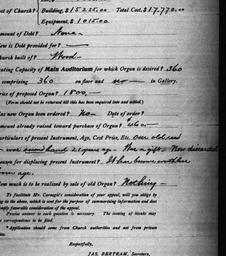 of Church? Building, $15255.00 Total Cost, $17,770.00
Equipment, $1015.00
Amount of Debt? None
How is Debt provided for?
Church built of? Wood
Seating Capacity of Main Auditorium for which Organ is desired? 360
comprising 360 on floor and no in Gallery.
Price of proposed Organ? 1800
(Form should not be returned till this has been inquired into and added.)
Has new Organ been ordered? No Date of order?
Amount already raised toward purchase of Organ?
Particulars of present Instrument, Age, Cost Price, Etc. Our old reed
was second hand 21 years ago. Was a gift. Now discarded
Reasons for displacing present Instrument? It has become worthless
from age.
How much is to be realized by sale of old Organ? Nothing
To facilitate Mr. Carnegie's consideration of your appeal, will you oblige by
filling in the above, which is sent for the purpose of summarising information and does
not imply favorable consideration of the appeal.
Precise answer to each question is necessary. The issuing of blanks may
be correspondence to be filed.
Application should come from Church authorities and not from private
Respectfully,
JAS. BERTRAM, Secretary,